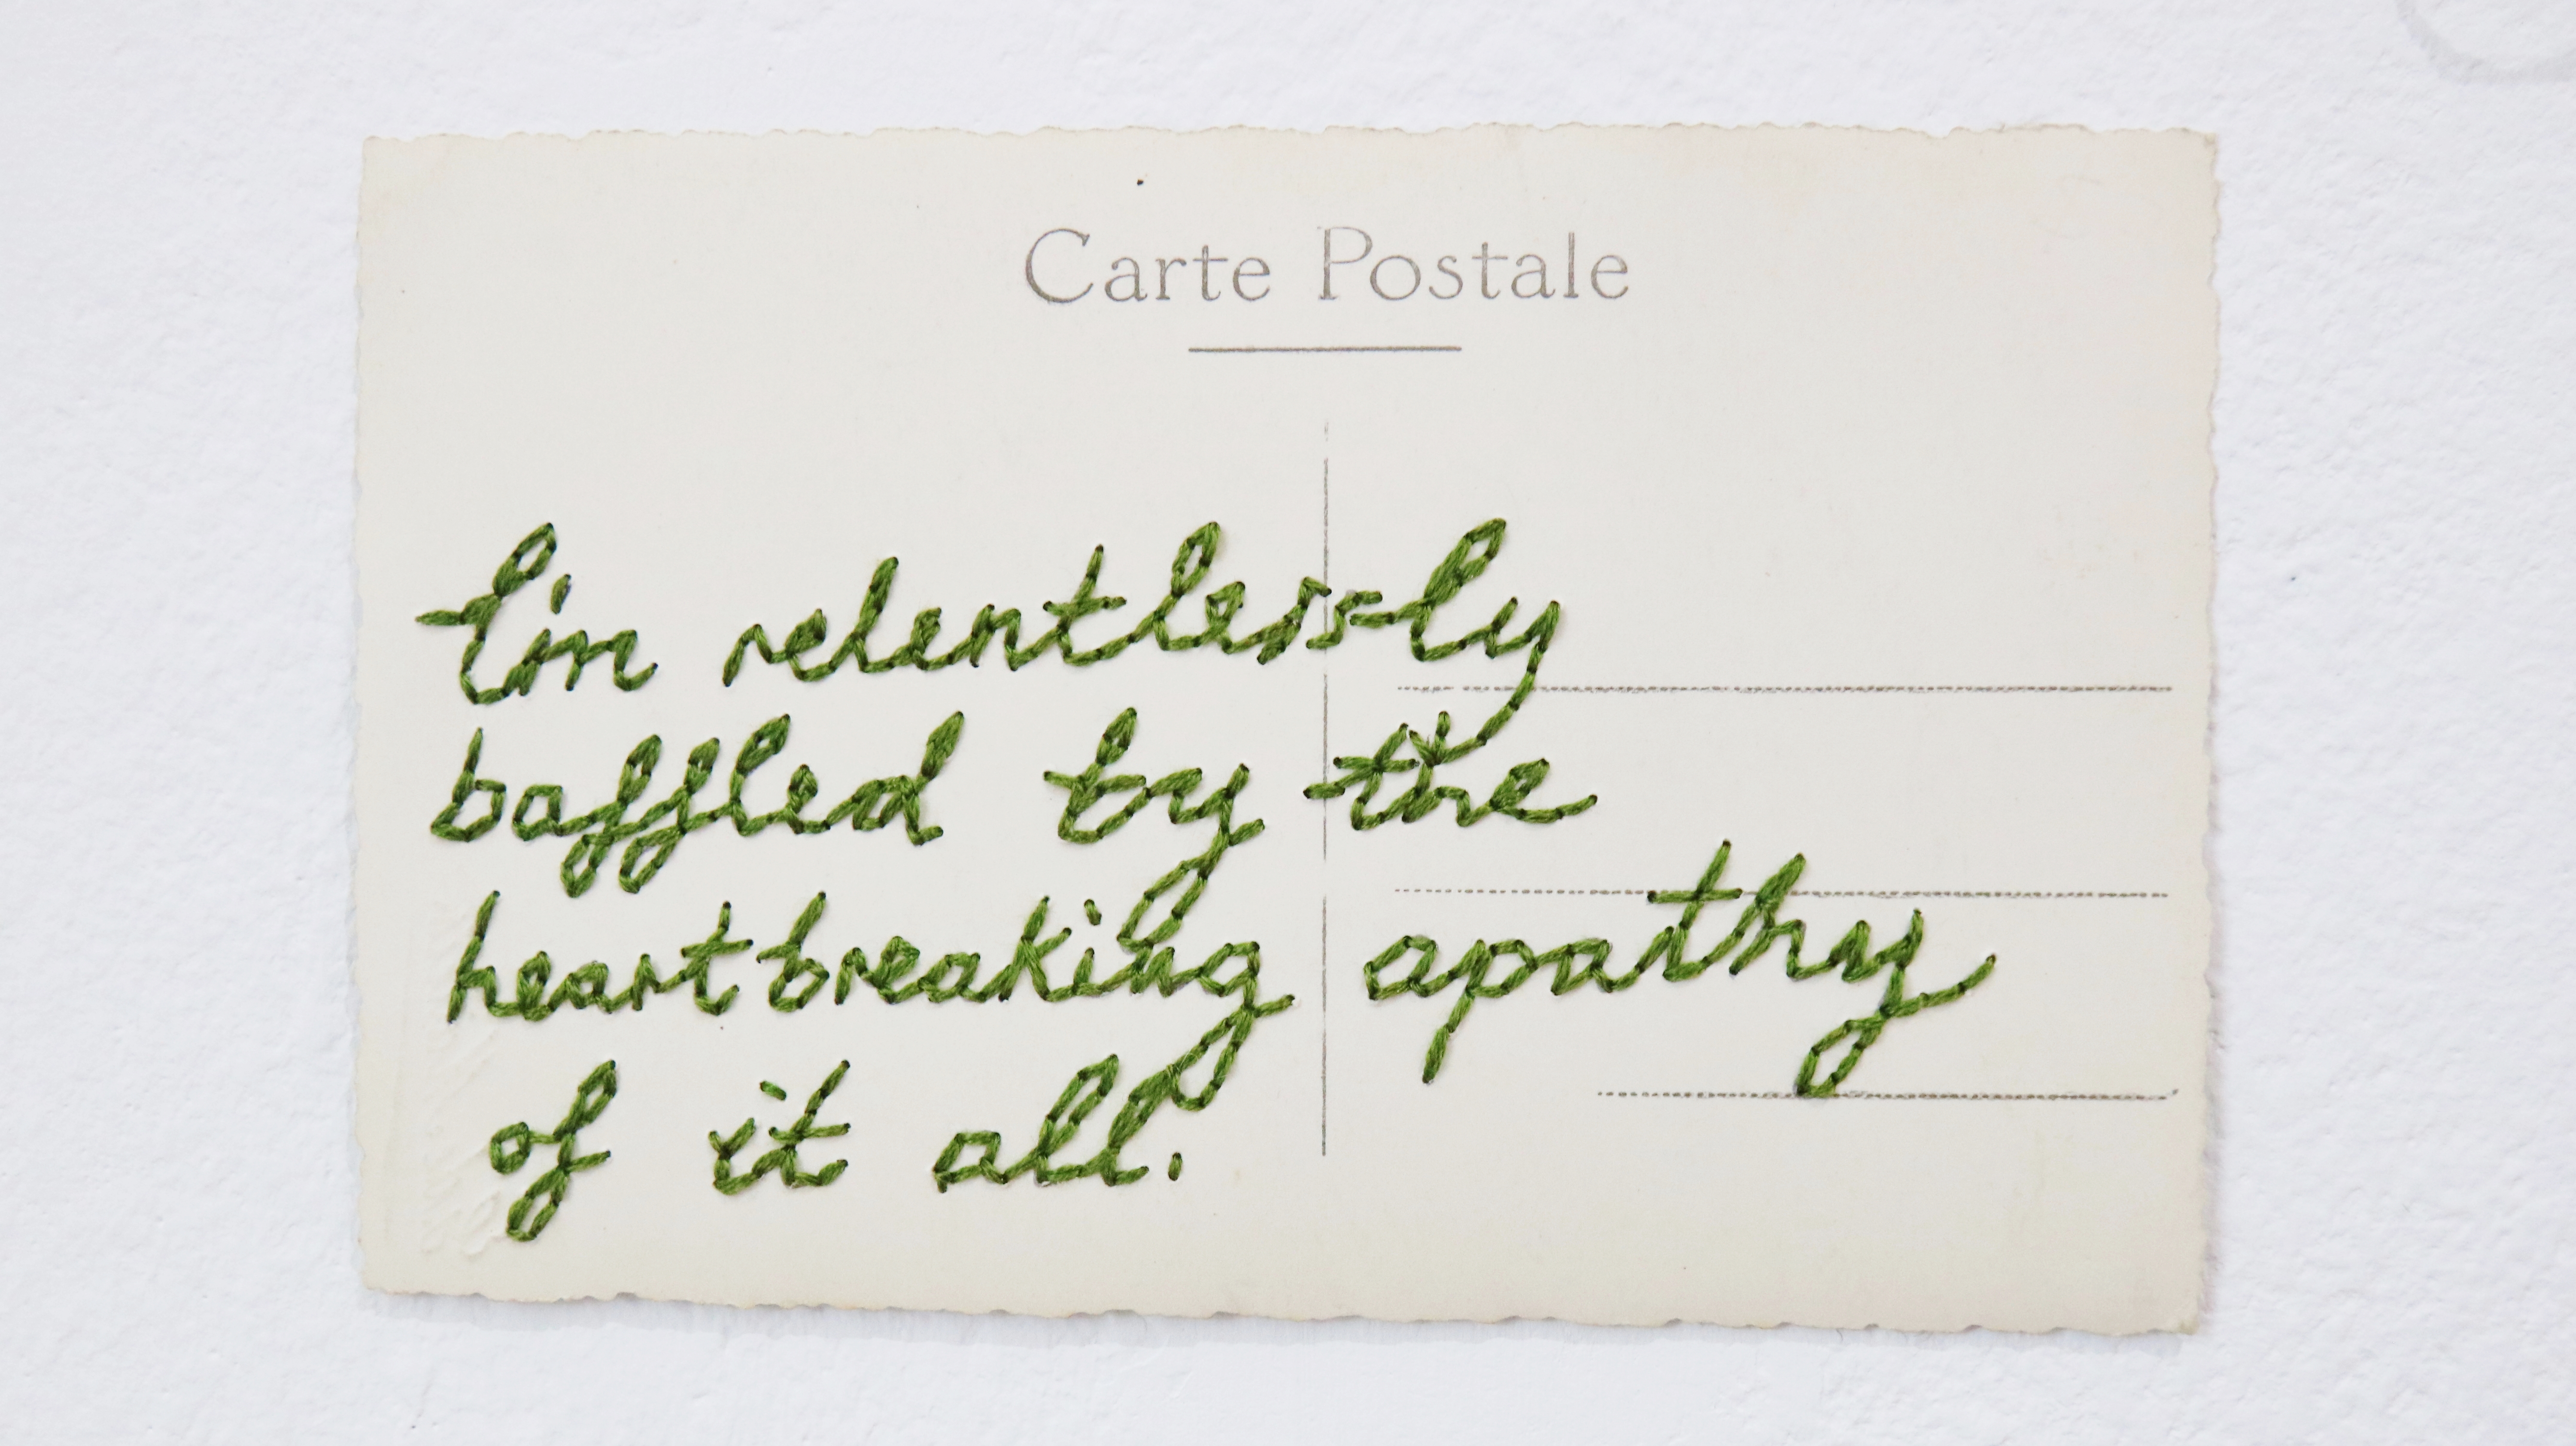 Carte Postale
I'm relentlessly
baffled by the
heartbreaking apathy
of it all.